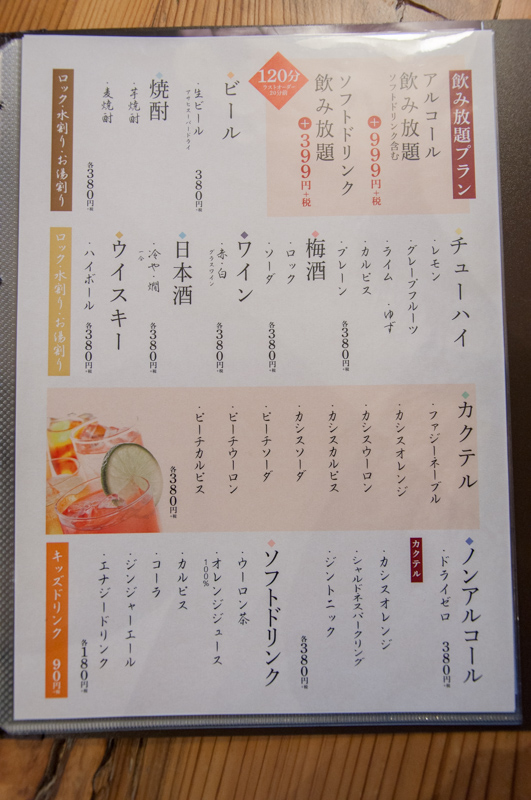 飲み放題プラン
アルコール
飲み放題
ソフトドリンク含む
+999円+税
ソフトドリンク
飲み放題
+399円+税
120分
ラストオーダー
30分前
ビール
・生ビール
アサヒスーパードライ
380円+税
焼酎
・芋焼酎
・麦焼酎
各380円+税
ロック・水割り・お湯割り
チューハイ
・レモン
・グレープフルーツ
・ライム ・ゆず
・カルピス
・プレーン
各380円+税
梅酒
・ロック
・ソーダ
各380円+税
ワイン
・赤・白
グラスワイン
各380円+税
日本酒
・冷や・燗
一合
各380円+税
ウイスキー
・ハイボール
各380円+税
ロック・水割り・お湯割り
カクテル
・ファジーネーブル
・カシスオレンジ
・カシスウーロン
・カシスカルピス
・カシスソーダ
・ピーチソーダ
・ピーチウーロン
・ピーチカルピス
各380円+税
ノンアルコール
・ドライゼロ 380円+税
カクテル
・カシスオレンジ
・シャルドネスパークリング
・ジントニック
各380円+税
ソフトドリンク
・ウーロン茶
・オレンジジュース
100%
・カルピス
・コーラ
・ジンジャーエール
・エナジードリンク
各180円+税
キッズドリンク 90円+税